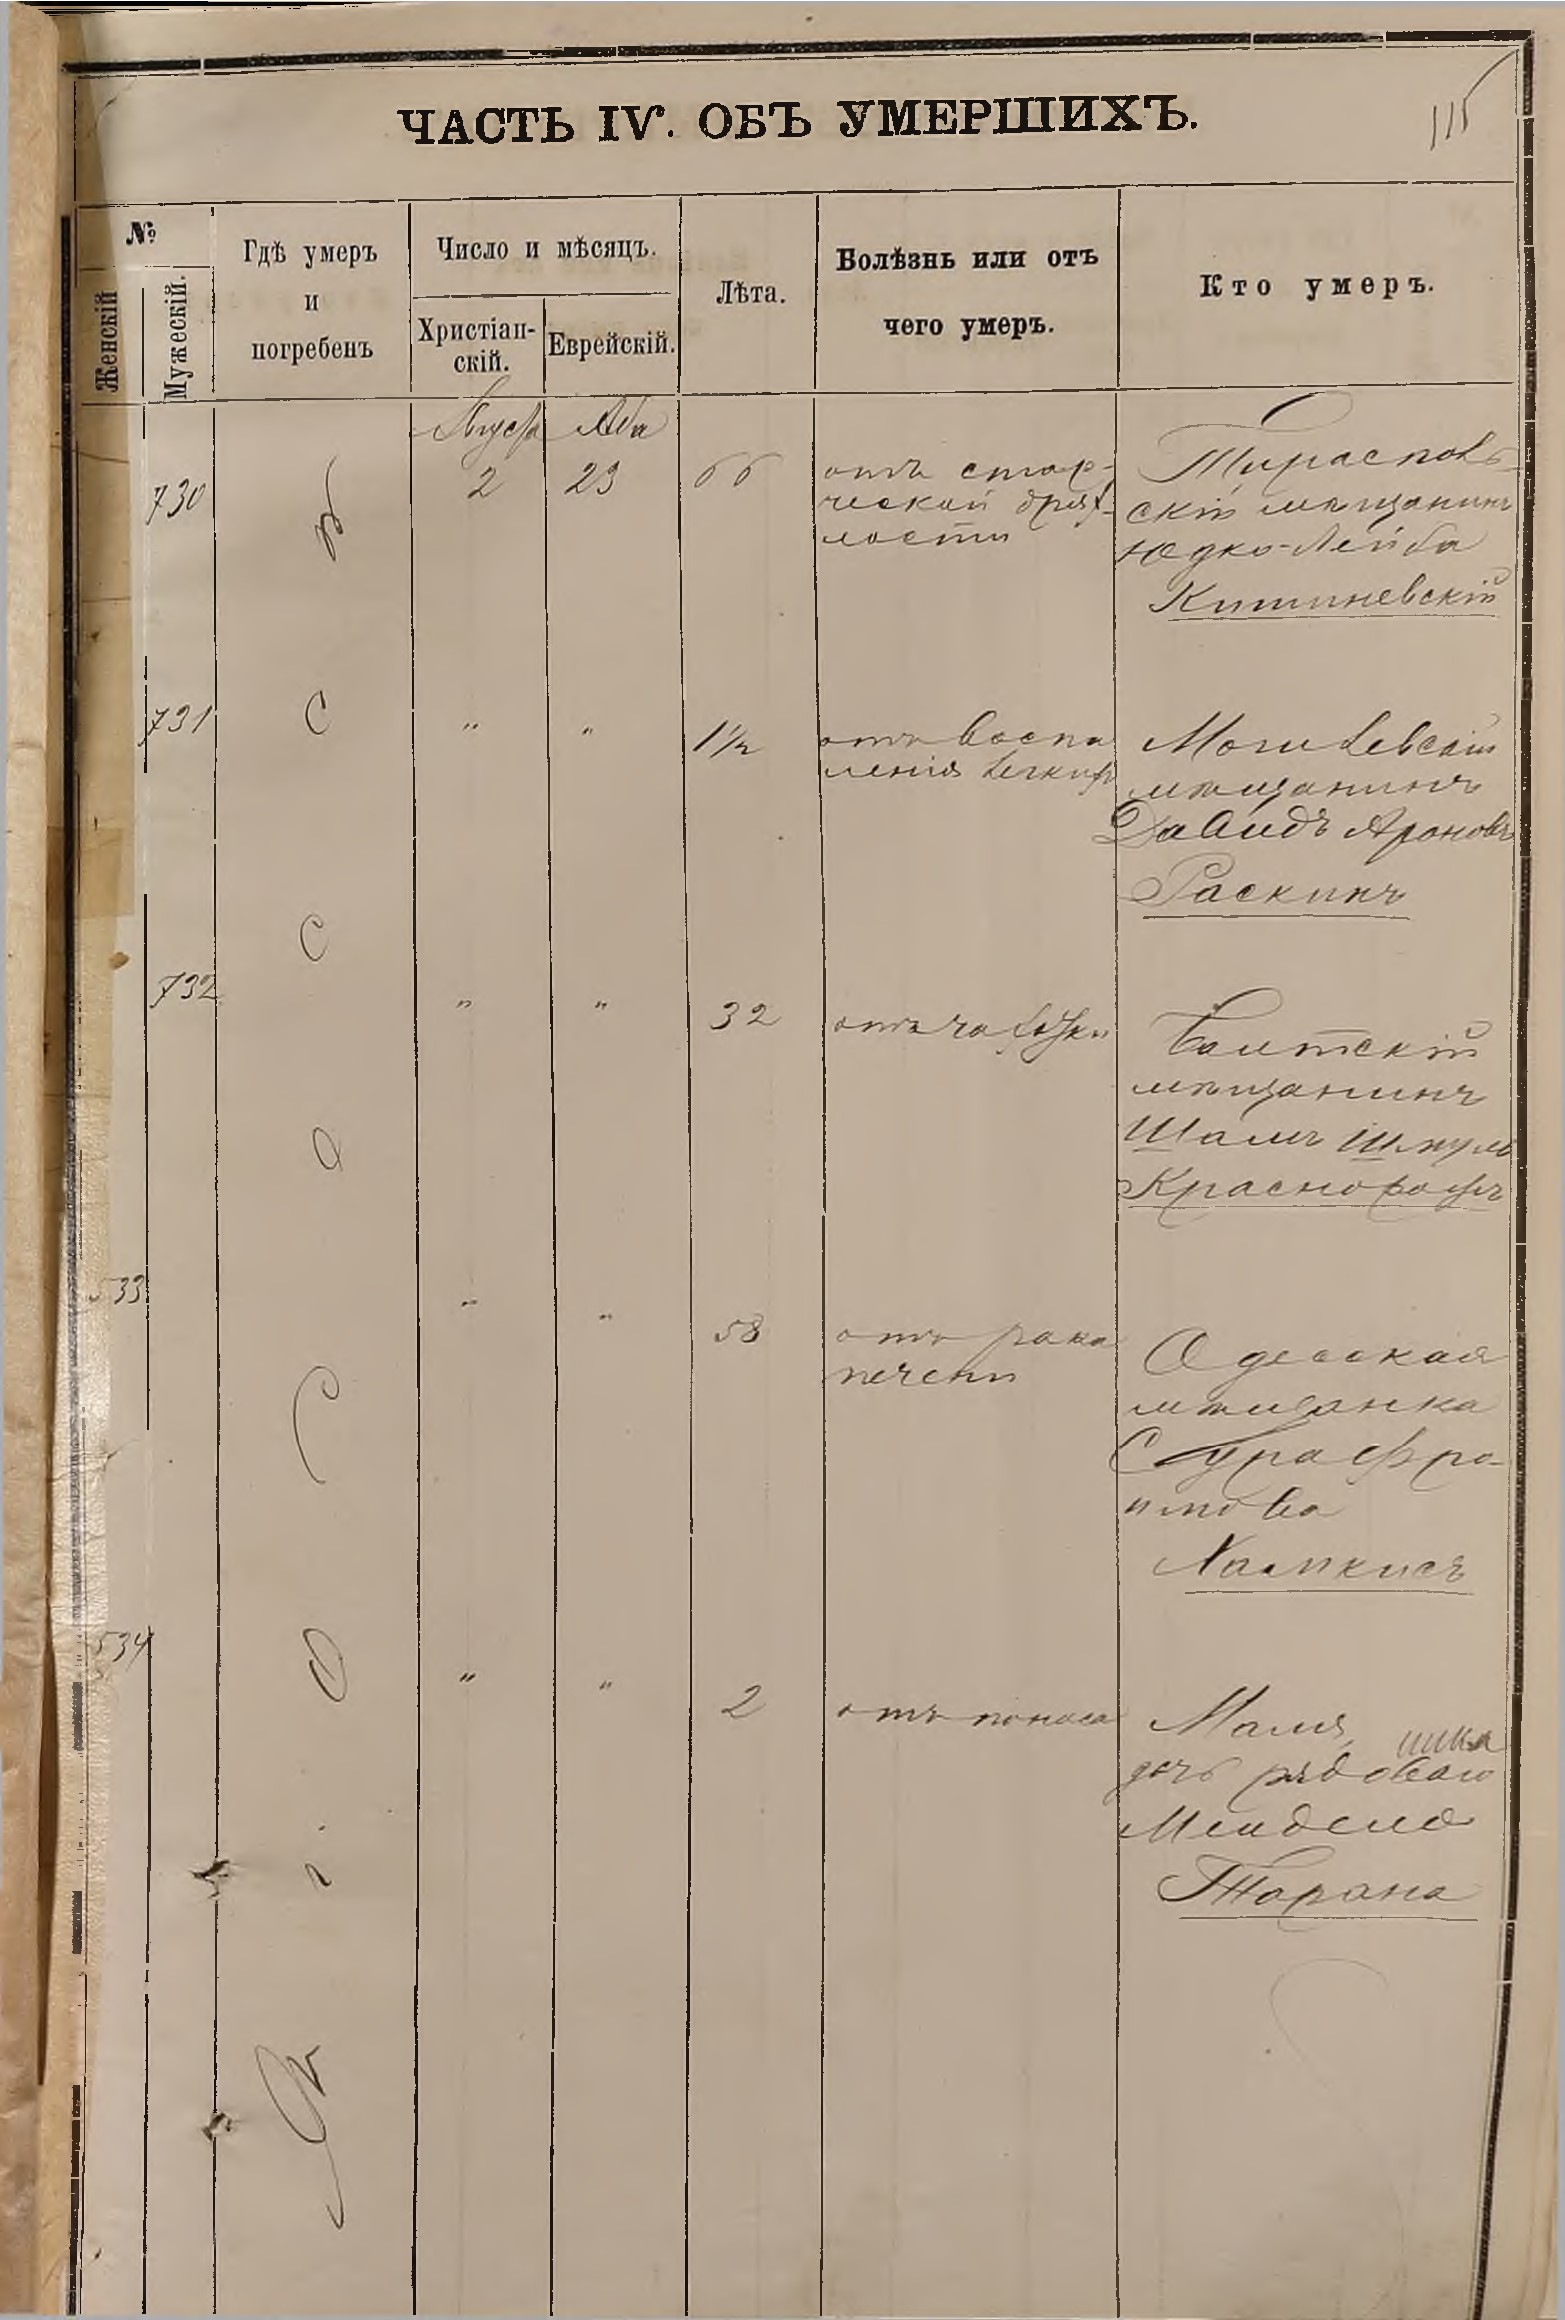 ЧАСТЬ IV. ОБЪ УМЕРШИХЪ.
115
№
Женскій
Мужескій.
Гдѣ умеръ
и
погребенъ
Число и мѣсяцъ.
Христіан-
скій.
Еврейскій.
Лѣта.
Болѣзнь или отъ
чего умеръ.
Кто умеръ.
Ава
730
2
23
66
отъ стар-
ческой дрях-
лости
Тирасполь-
скій мѣщанинъ
Юдко-Лейба
Кишиневскій
731
"
"
1½
отъ воспа
ленія легкихъ
Могилевскій
мѣщанинъ
Давидъ Ароновъ
Раскинъ
732
"
"
32
отъ чахотки
Балтскій
мѣщанинъ
Шмуль
533
"
"
58
отъ рака
печени
Одесская
мѣщанка
Сура Фро-
имова
534
"
"
2
отъ поноса
Маля,
дочь рядоваго
Менделя
Тарана